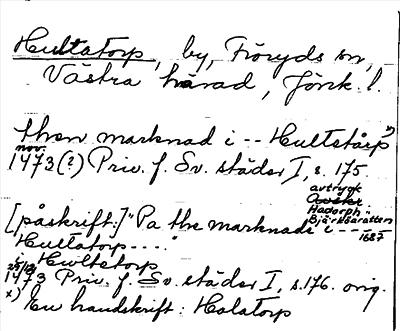 Hultatorp, by, Föryds sn,
Västra härad, Jönk. l.
then marknad i -- Hultetårp"
nov.
1473(?) Priv. f. Sv. städer I, s. 175
avtryck
Hadorph:
Bjärköarätten
1687
[påskrift:] "Pa the marknade i ----
Hultatorp ...."
i Hwltetorp
25/12
1473 Priv. f. Sv. städer I, s. 176. orig.
x) En handskrift: Holatorp